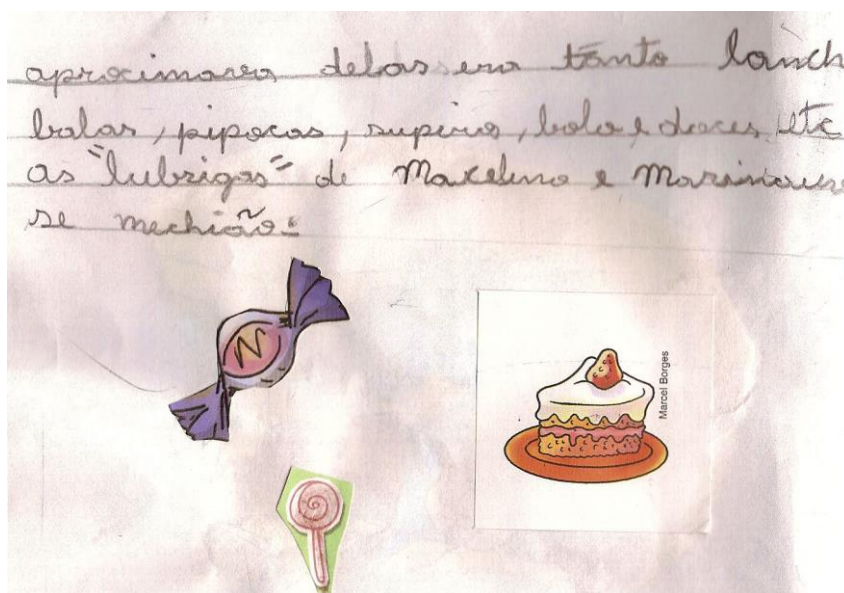 aproximava delas era tanto lanch
balas, pipocas, supiros, bolo, e doces, etc
as "lubrigas" de Marcelino e
se mechião.
Marcel Borges